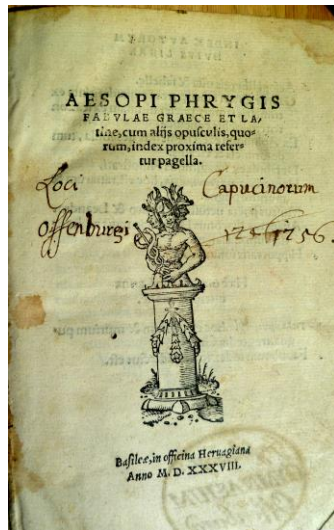 AESOPI PHRYGIS
FABVLAE GRAECE ET LA-
tine, cum alijs opusculis, quo-
rum, index proxima refer-
tur pagella.
Loci Capucinorum
Offenburgi
Basileæ, in officina Heruagiana
Anno M. D. XXXVIII.